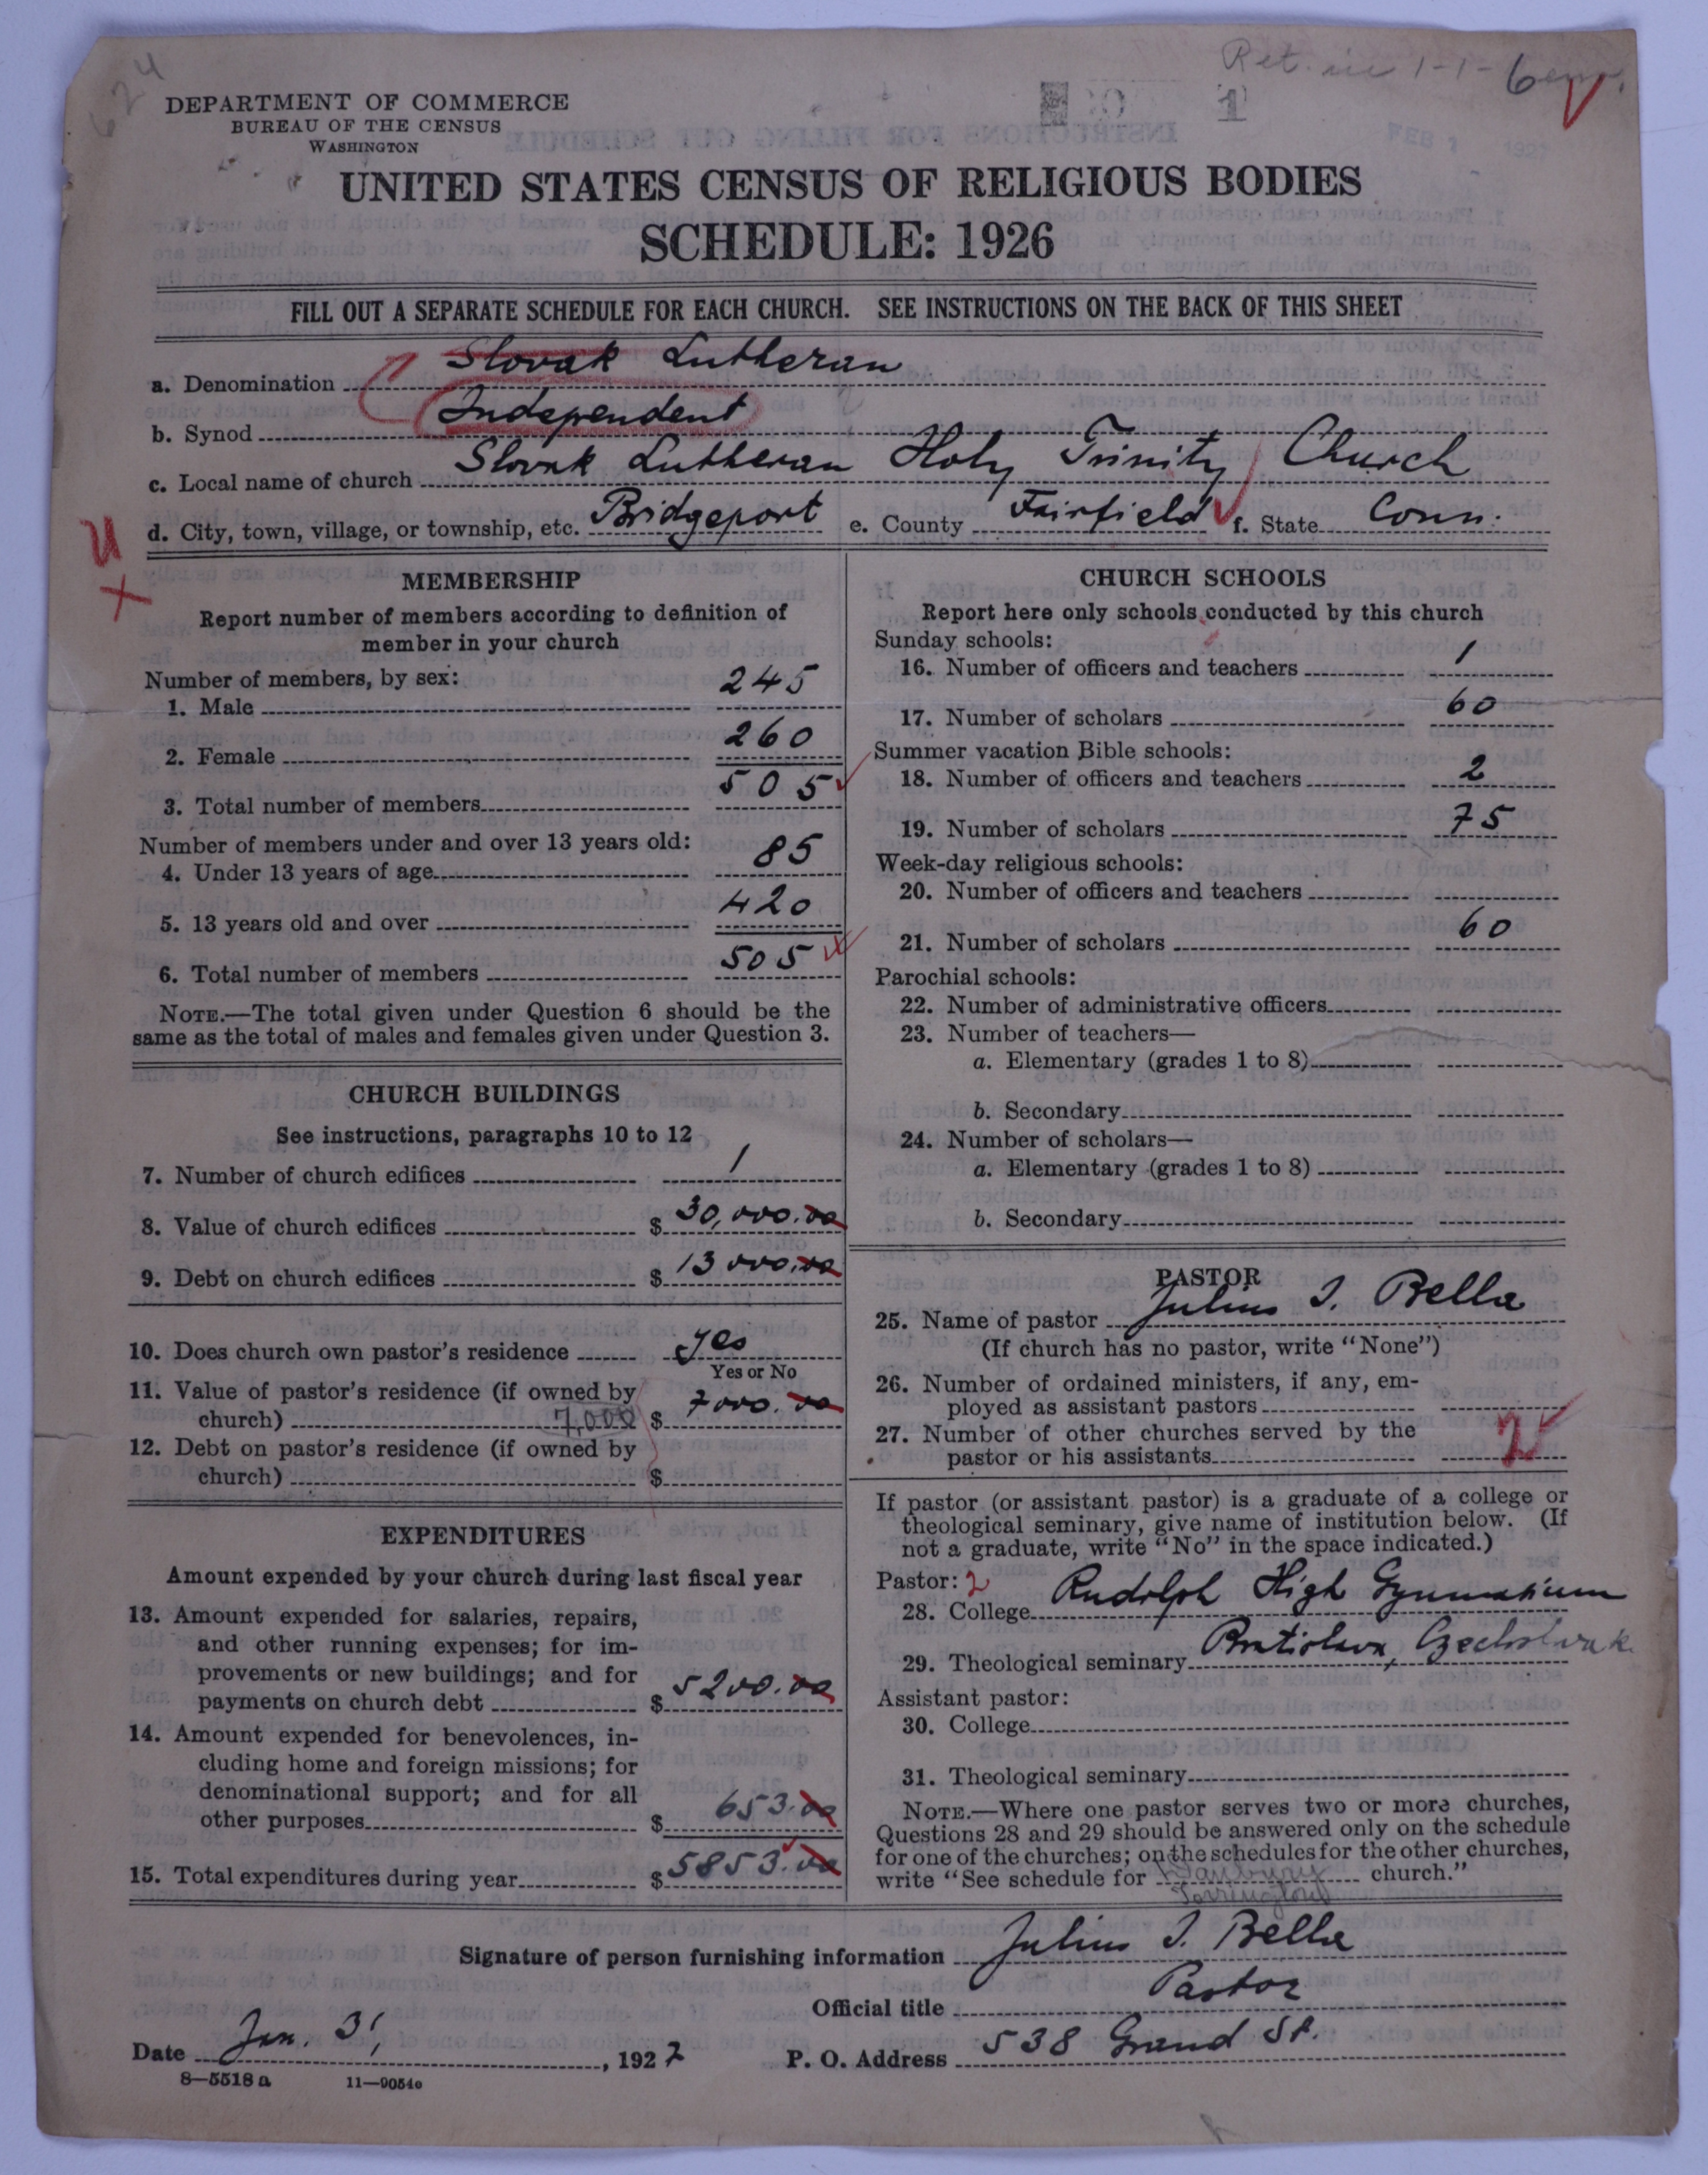 624
Ret. in 1-1-6
1
FEB 1927
DEPARTMENT OF COMMERCE
BUREAU OF THE CENSUS
WASHINGTON
UNITED STATES CENSUS OF RELIGIOUS BODIES
SCHEDULE: 1926
FILL OUT A SEPARATE SCHEDULE FOR EACH CHURCH. SEE INSTRUCTIONS ON THE BACK OF THIS SHEET
a. Denomination Slovak Lutheran
b. Synod Independent
c. Local name of church Slovak Lutheran Holy Trinity Church
d. City, town, village, or township, etc. Bridgeport e. County Fairfield f. State Conn.
U
X
MEMBERSHIP
Report number of members according to definition of
member in your church
Number of members, by sex:
1. Male 245
2. Female 260
3. Total number of members 505
Number of members under and over 13 years old:
4. Under 13 years of age 85
5. 13 years old and over 420
6. Total number of members 505
NOTE.—The total given under Question 6 should be the
same as the total of males and females given under Question 3.
CHURCH BUILDINGS
See instructions, paragraphs 10 to 12
7. Number of church edifices 1
8. Value of church edifices $ 30,000.00
9. Debt on church edifices $ 13000.00
10. Does church own pastor's residence yes
Yes or No
11. Value of pastor's residence (if owned by
church) 7,000 $ 7000.00
12. Debt on pastor's residence (if owned by
church) $
EXPENDITURES
Amount expended by your church during last fiscal year
13. Amount expended for salaries, repairs,
and other running expenses; for im-
provements or new buildings; and for
payments on church debt $ 5200.00
14. Amount expended for benevolences, in-
cluding home and foreign missions; for
denominational support; and for all
other purposes $ 653.00
15. Total expenditures during year $ 5853.00
CHURCH SCHOOLS
Report here only schools conducted by this church
Sunday schools:
16. Number of officers and teachers 1
17. Number of scholars 60
Summer vacation Bible schools:
18. Number of officers and teachers 2
19. Number of scholars 75
Week-day religious schools:
20. Number of officers and teachers
21. Number of scholars 60
Parochial schools:
22. Number of administrative officers
23. Number of teachers—
a. Elementary (grades 1 to 8)
b. Secondary
24. Number of scholars—
a. Elementary (grades 1 to 8)
b. Secondary
PASTOR
25. Name of pastor Julius I. Bella
(If church has no pastor, write "None")
26. Number of ordained ministers, if any, em-
ployed as assistant pastors
27. Number of other churches served by the
pastor or his assistants 2
If pastor (or assistant pastor) is a graduate of a college or
theological seminary, give name of institution below. (If
not a graduate, write "No" in the space indicated.)
Pastor: 2
28. College Rudolph High Gymnasium
29. Theological seminary Bratislava, Czechoslovak
Assistant pastor:
30. College
31. Theological seminary
NOTE.—Where one pastor serves two or more churches,
Questions 28 and 29 should be answered only on the schedule
for one of the churches; on the schedules for the other churches,
write "See schedule for Danbury church."
Torrington
Signature of person furnishing information Julius I. Bella
Official title Pastor
Date Jan. 31, 1927 P. O. Address 538 Grand St.
8—5518 a 11—9054e